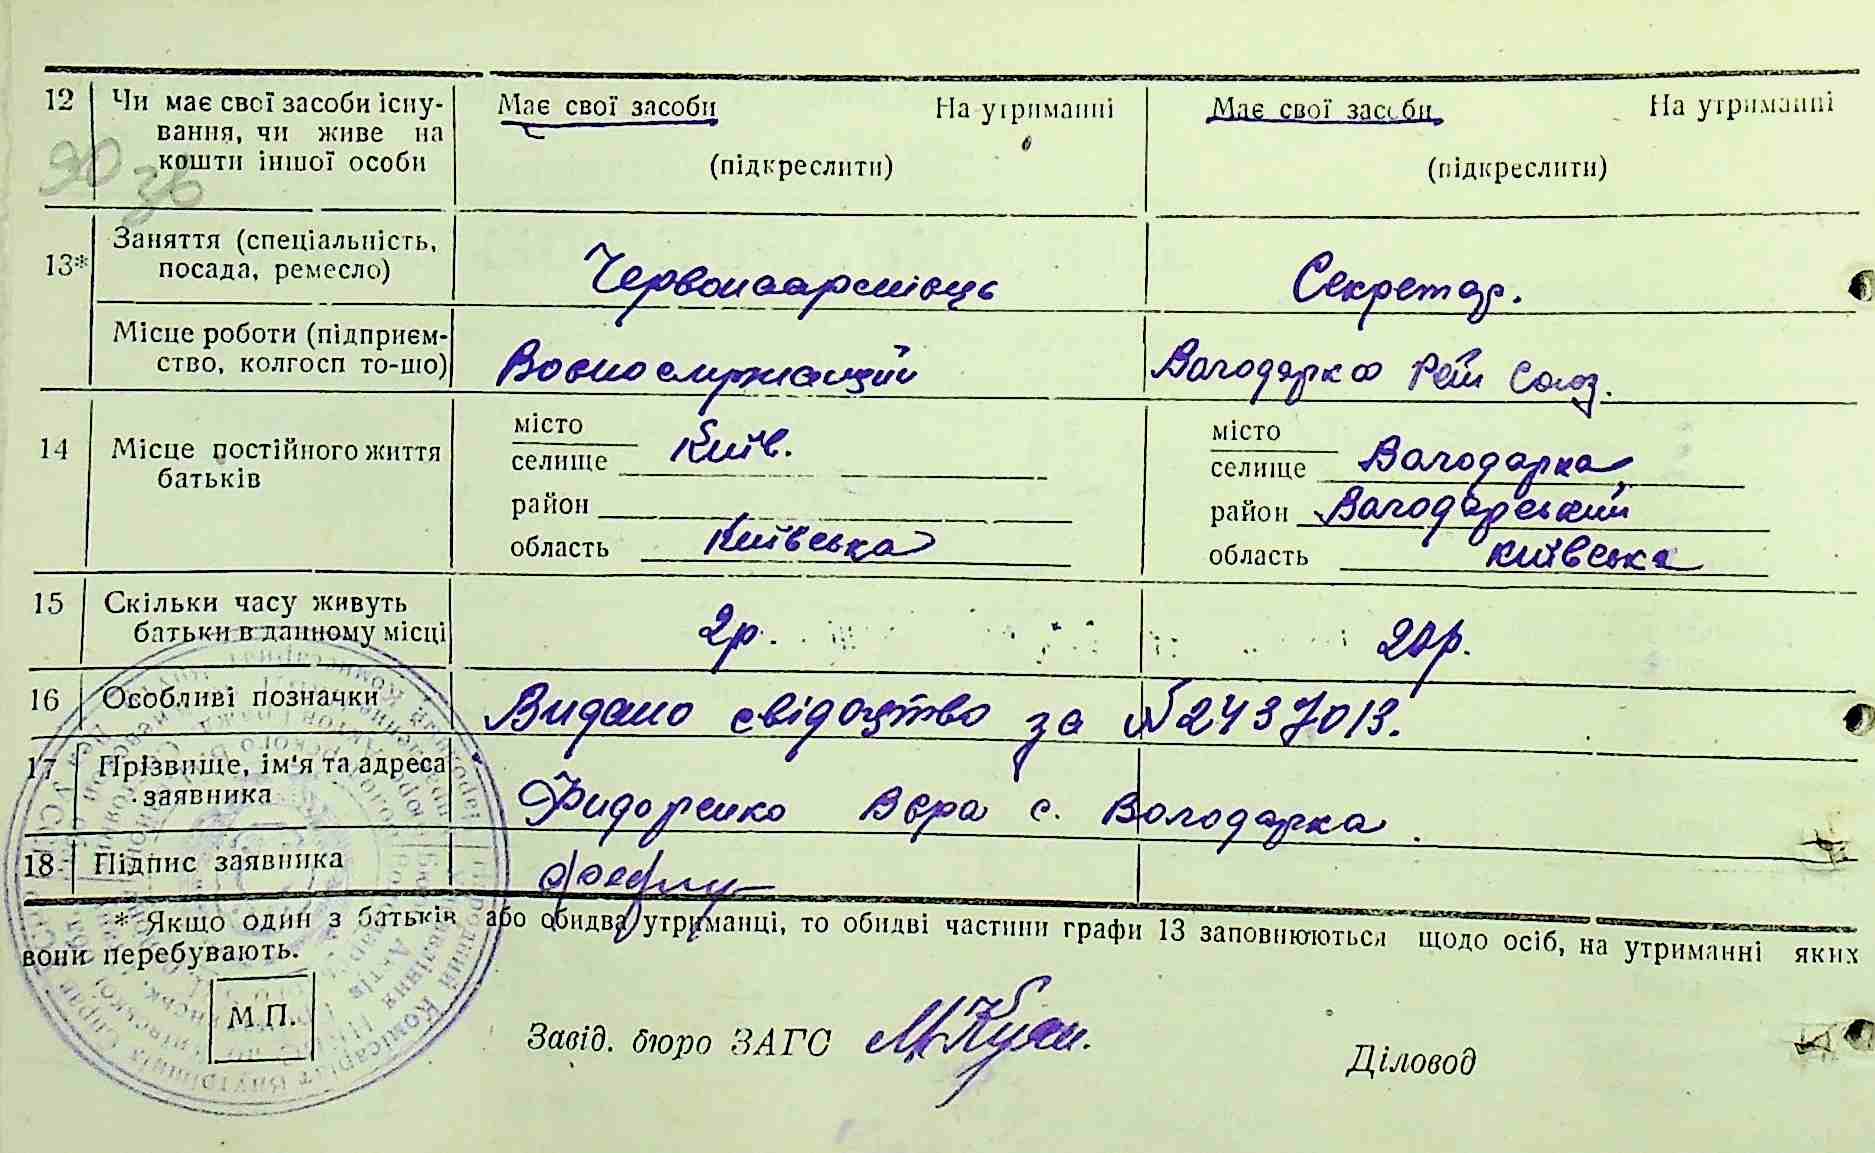 12 Чи має свої засоби існу- Має свої засоби На утриманні Має свої засоби На утриманні
вання, чи живе на
кошти іншої особи (підкреслити) (підкреслити)
90 36
Заняття (спеціальність,
13* посада, ремесло) Червоноармієць Секретар.
Місце роботи (підприєм-
ство, колгосп то-що) Воєнослужащий Володарк Рай Союз.
місто місто
14 Місце постійного життя Київ. Володарка
батьків селище селище
район район Володарський
область Київська область київська
15 Скільки часу живуть
батьки в данному місці 2р. 20р.
16 Особливі позначки Видано свідоцтво за №2437013.
17 Прізвище, ім'я та адреса
заявника Фидоренко Вєра с. Володарка.
18 Підпис заявника
* Якщо один з батьків або обидва утриманці, то обидві частини графи 13 заповнюються щодо осіб, на утриманні яких
вони перебувають.
М.П.
Завід. бюро ЗАГС
Діловод